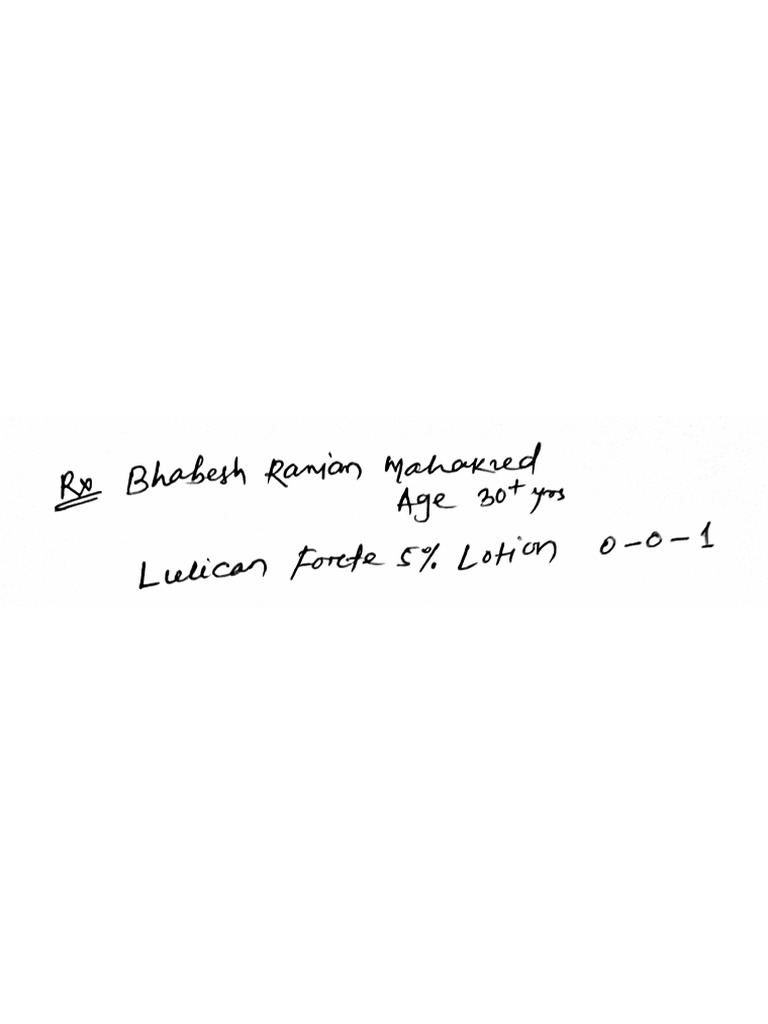 Rx Bhabesh Ranjan Mahakred
Age 30+ yrs
Lulican Forte 5% Lotion 0-0-1